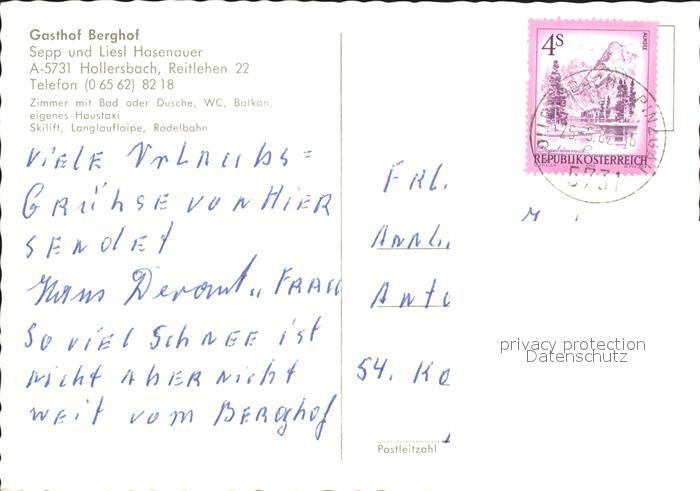 Gasthof Berghof
Sepp und Liesl Hasenauer
A-5731 Hollersbach, Reitlehen 22
Telefon (0 65 62) 82 18
Zimmer mit Bad oder Dusche, WC, Balkon,
eigenes Haustaxi
Skilift, Langlaufloipe, Rodelbahn
VIELE URLAUBS=
GRÜHSE VON HIER
SENDET
Hans u. FRAU
SO VIEL SCHNEE ist
nicht ABER nicht
weit vom BERGHOF
FRL.
ANNLI
ANTO
54. KO
Postleitzahl
4S
ALMSEE
REPUBLIK ÖSTERREICH
5731
privacy protection
Datenschutz